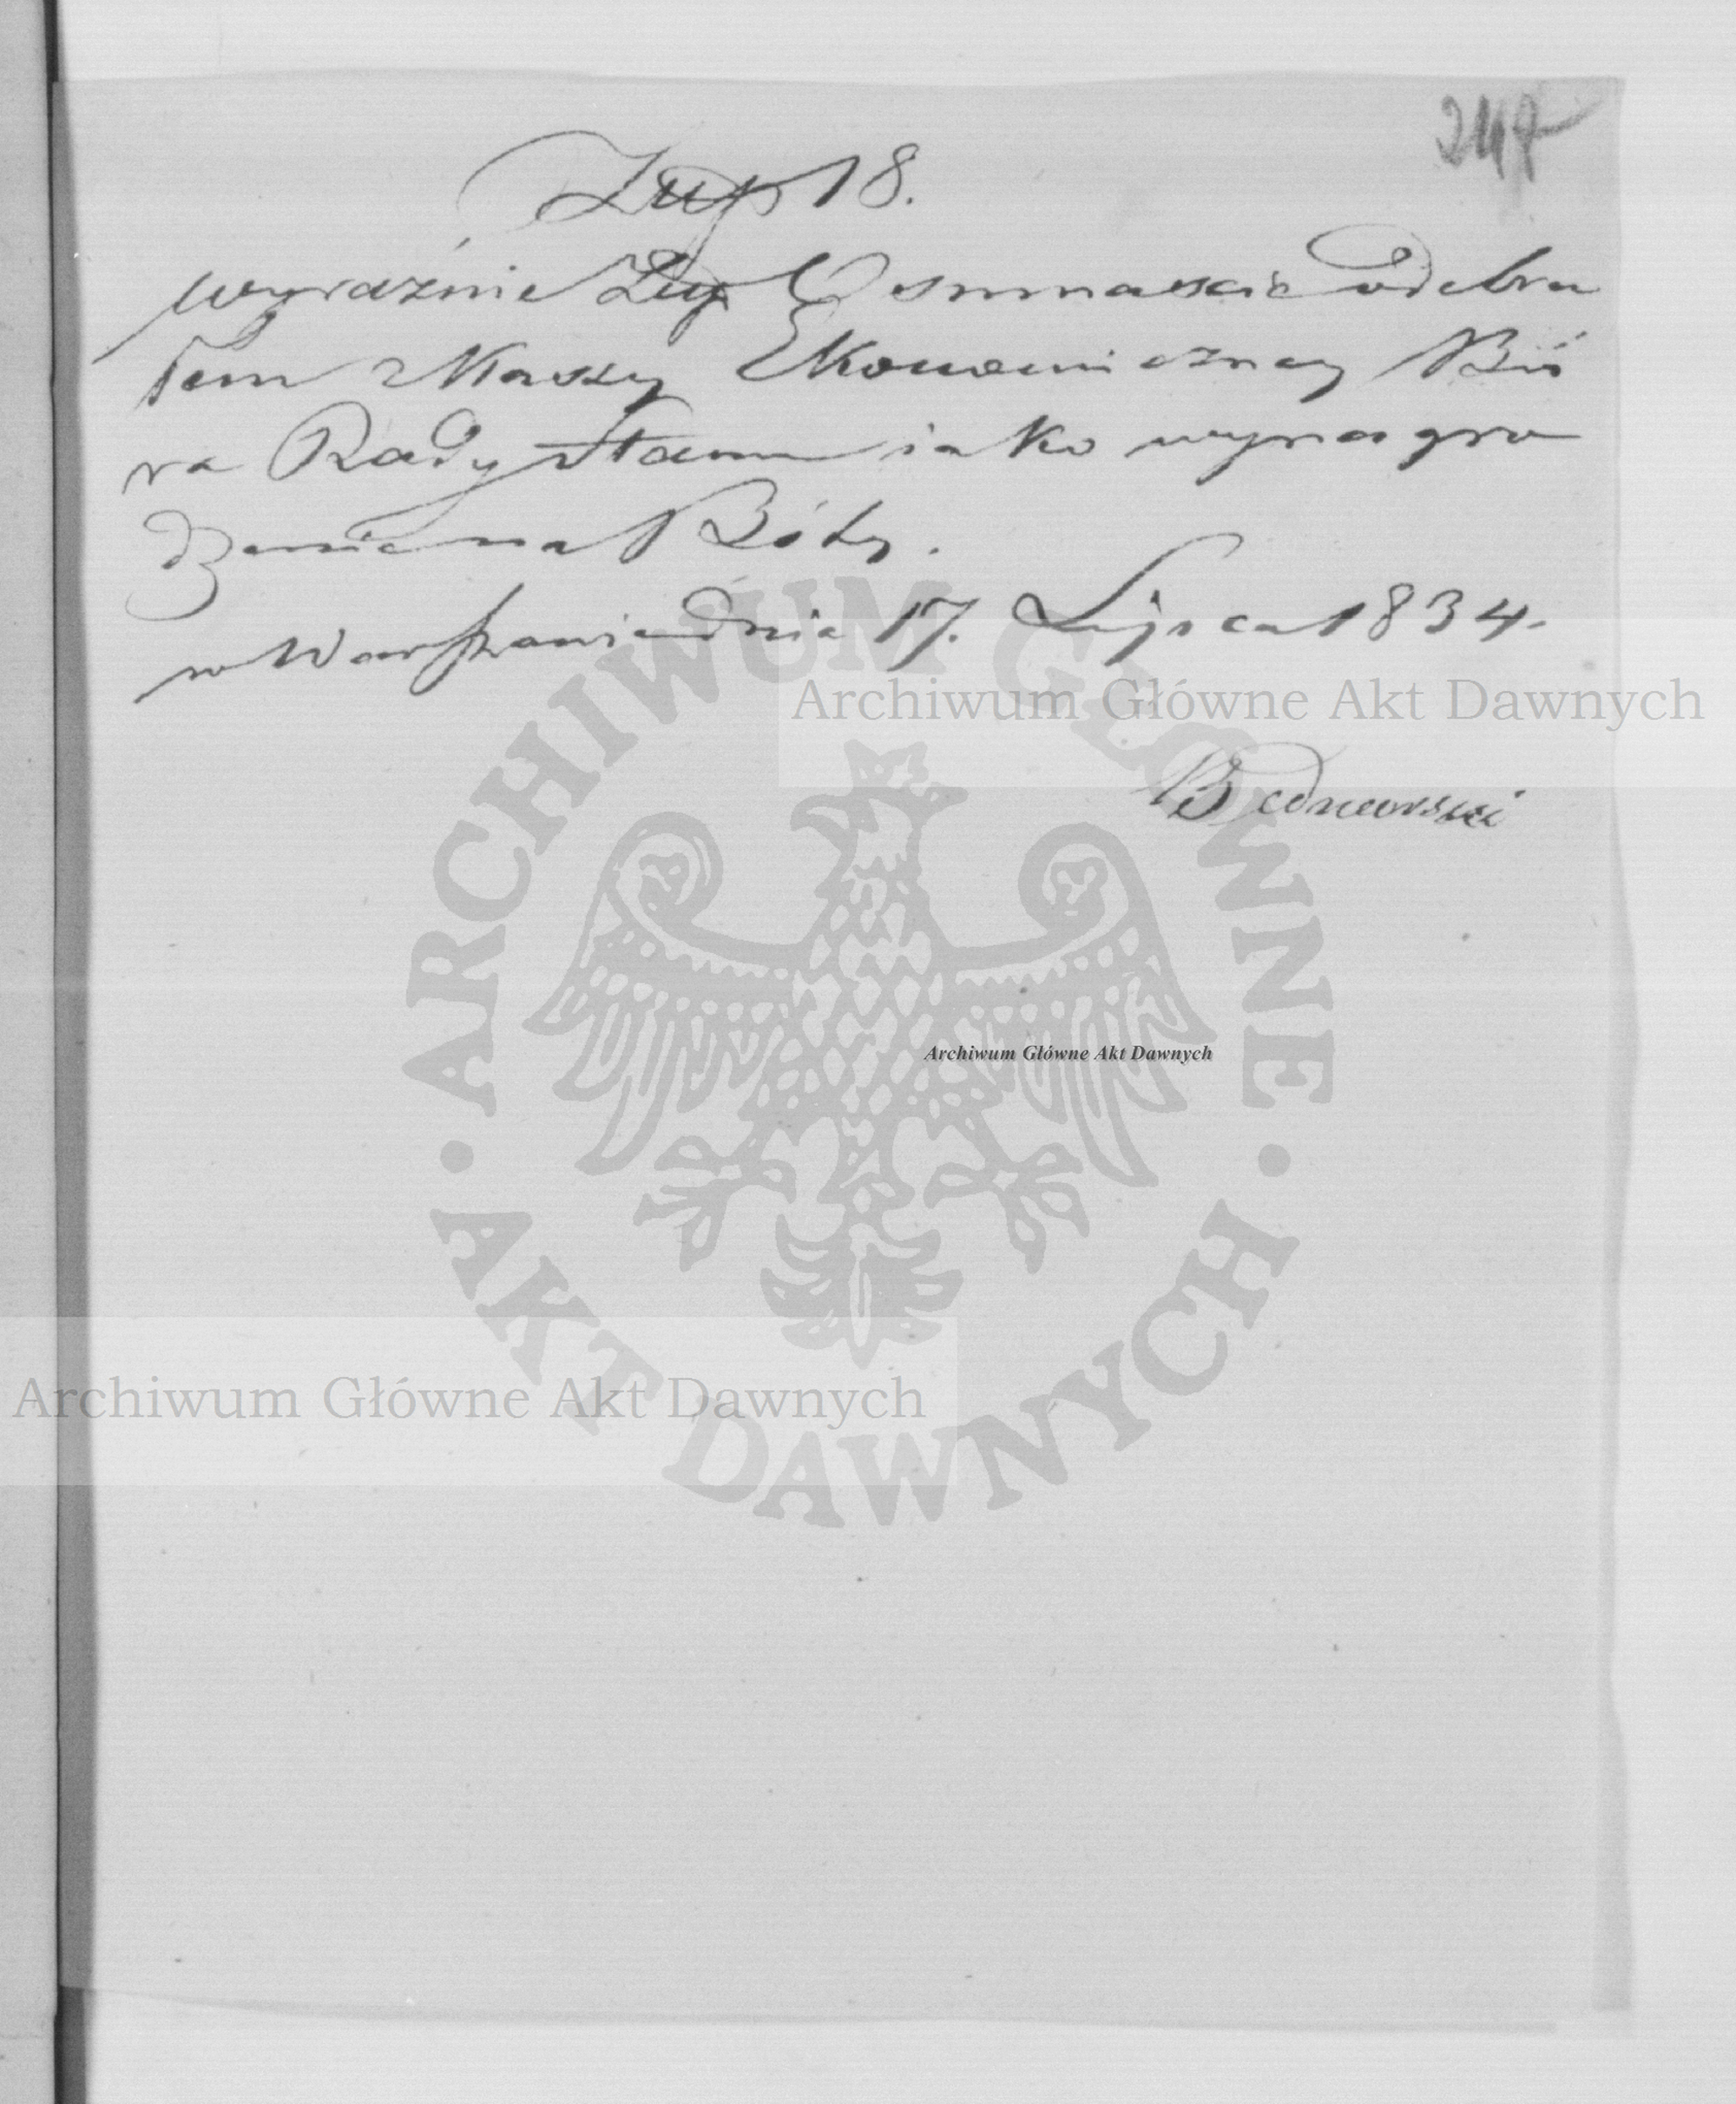 247
Złp 18.
wyraźnie Złp Osmnascie odebra
łem z Kassy Ekonomiczney Biu
ra Rady Stanu iako wynagro
dzenie na Bóty.
w Warszawie dnia 17. Lipca 1834.
Archiwum Główne Akt Dawnych
Bednawski
ARCHIWUM GŁÓWNE
Archiwum Główne Akt Dawnych
Archiwum Główne Akt Dawnych
AKT DAWNYCH